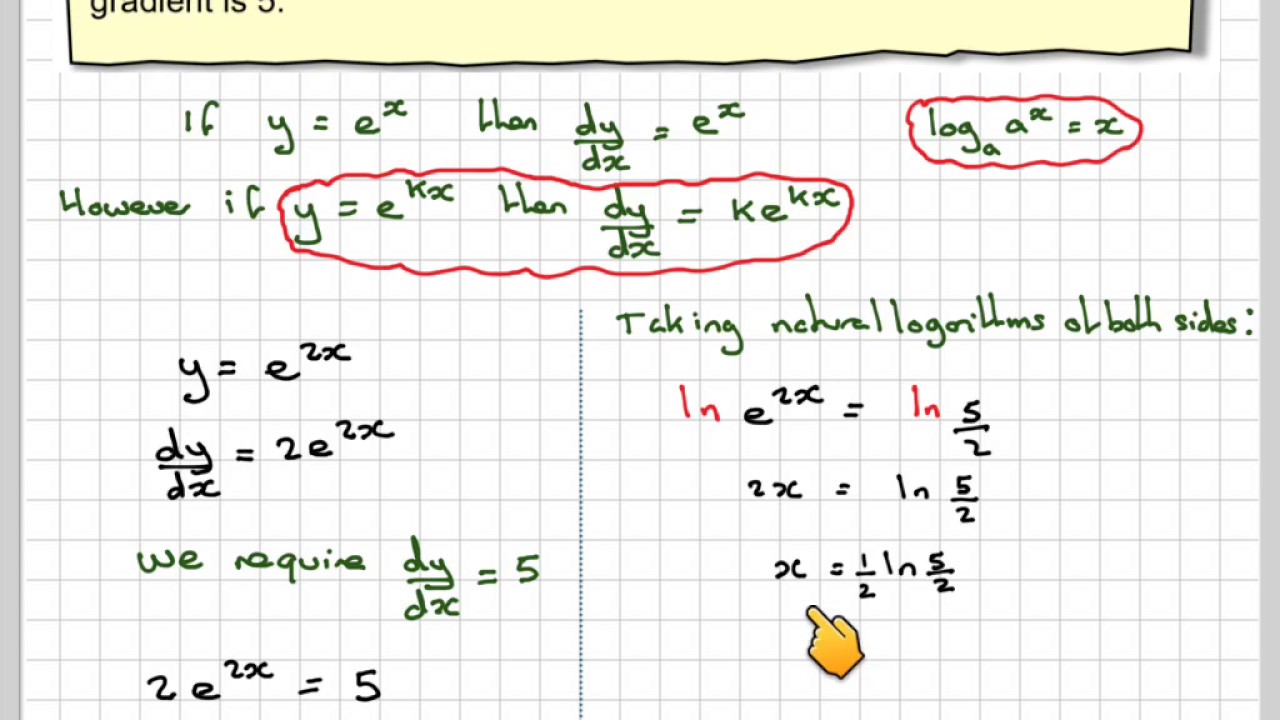 gradient is 5.
If y = e^x then dy/dx = e^x
log_a a^x = x
However if y = e^{kx} then dy/dx = ke^{kx}
y = e^{2x}
dy/dx = 2e^{2x}
We require dy/dx = 5
2e^{2x} = 5
Taking natural logorithms of both sides:
ln e^{2x} = ln 5/2
2x = ln 5/2
x = 1/2 ln 5/2